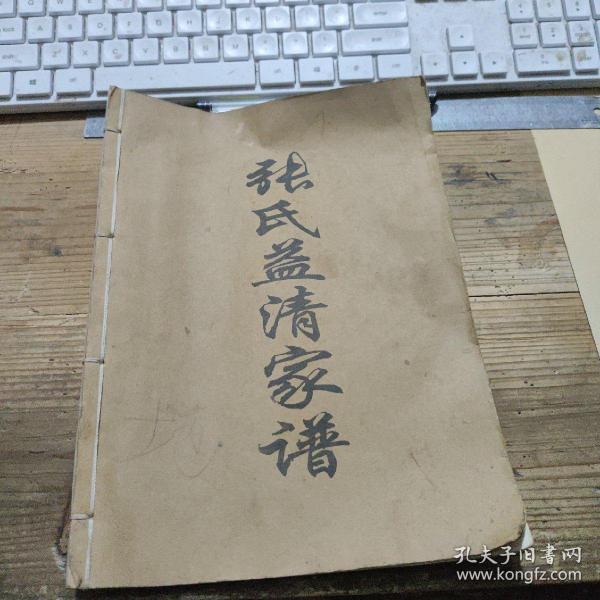 张氏益清家谱
孔夫子旧书网
www.kongfz.com